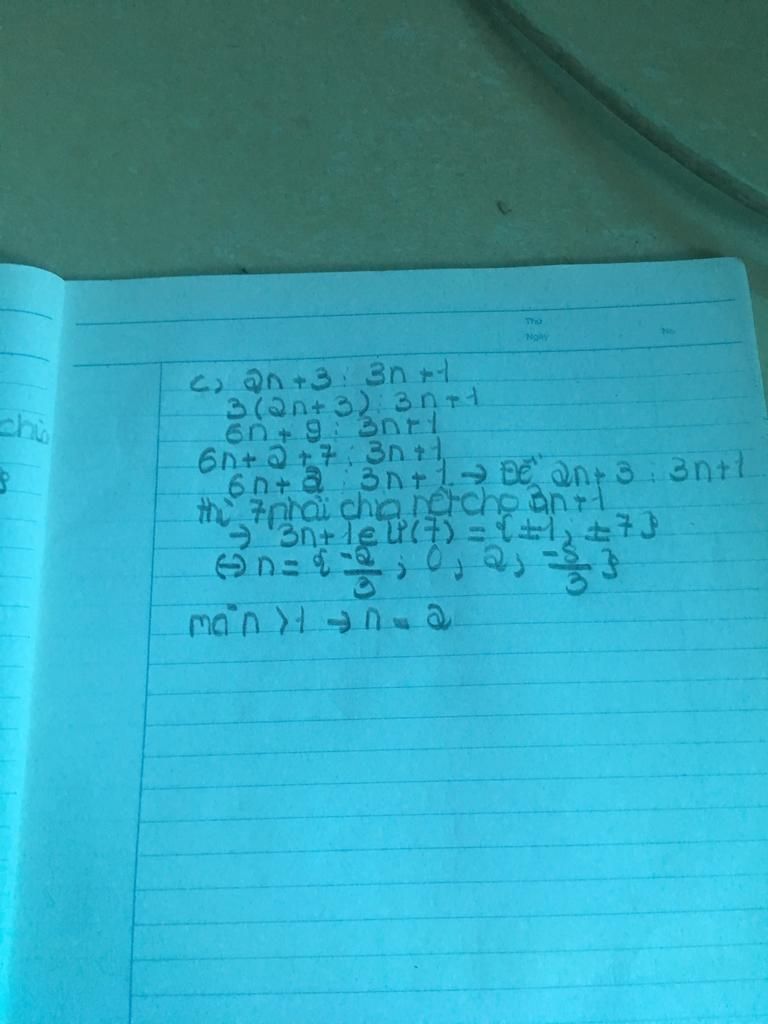 Thứ
Ngày
No.
c, 2n+3 ⋮ 3n+1
3(2n+3) ⋮ 3n+1
6n+9 ⋮ 3n+1
6n+2+7 ⋮ 3n+1
6n+2 ⋮ 3n+1 → Để 2n+3 ⋮ 3n+1
thì 7 phải chia hết cho 3n+1
→ 3n+1 ∈ Ư(7) = {±1; ±7}
⇔ n = {-2/3; 0, 2, -8/3}
mà n >1 → n = 2